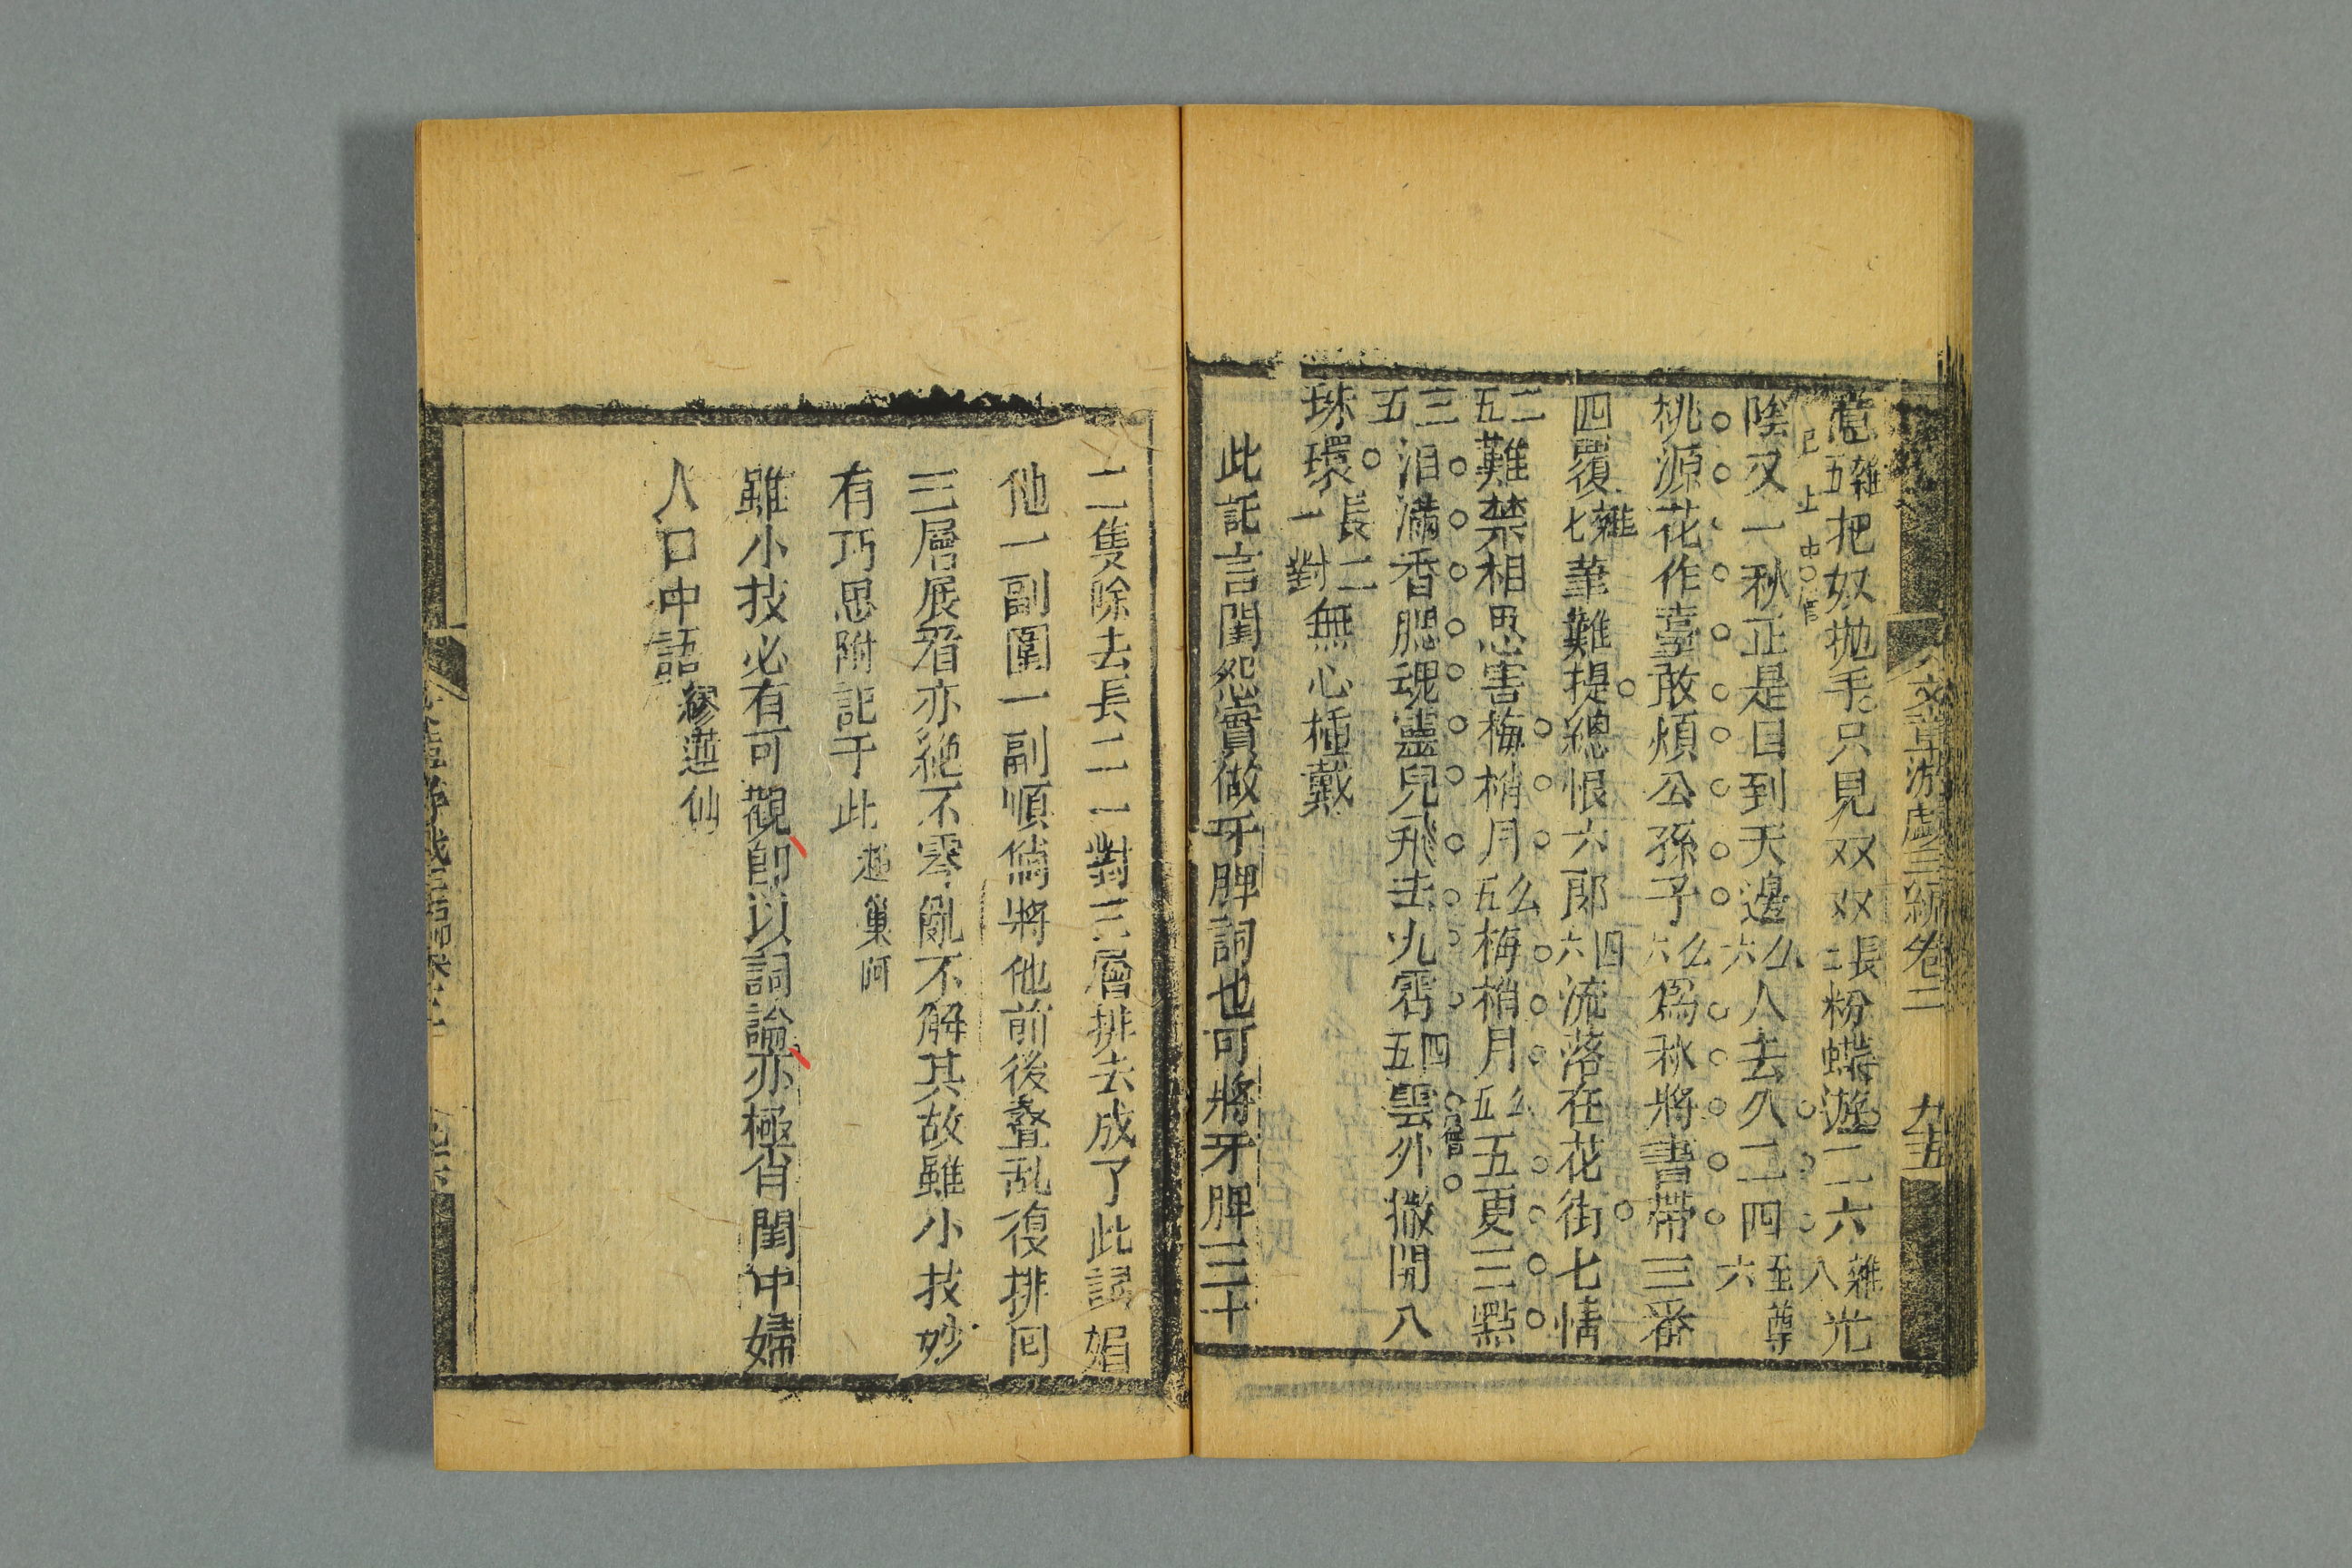 文章游戲三編卷三 九五
意雜五把奴拋手只見双双長二粉蝶遊二六雜八光
陰又一秋正是目到天邊么六人去久二四至尊六
桃源花作臺敢煩公孫子么六爲秋將書帶三番
四覆雜七筆難提總恨六郎四六流落在花街七情
二五難禁相思害梅梢月么五梅梢月么五五更三點
三五泪滿香腮魂靈兒飛去九霄四五雲外撇開八
珠環長二一對無心插戴
此託言閨怨實做牙牌詞也可將牙牌三十
二隻除去長二一對三層排去成了此詞
他一副圍一副順倘將他前後疊乱復排回
三層展看亦絕不零亂不解其故雖小技妙
有巧思附記于此 趙巢阿
雖小技必有可觀卽以詞論亦極肖閨中婦
人口中語 繆蓮仙